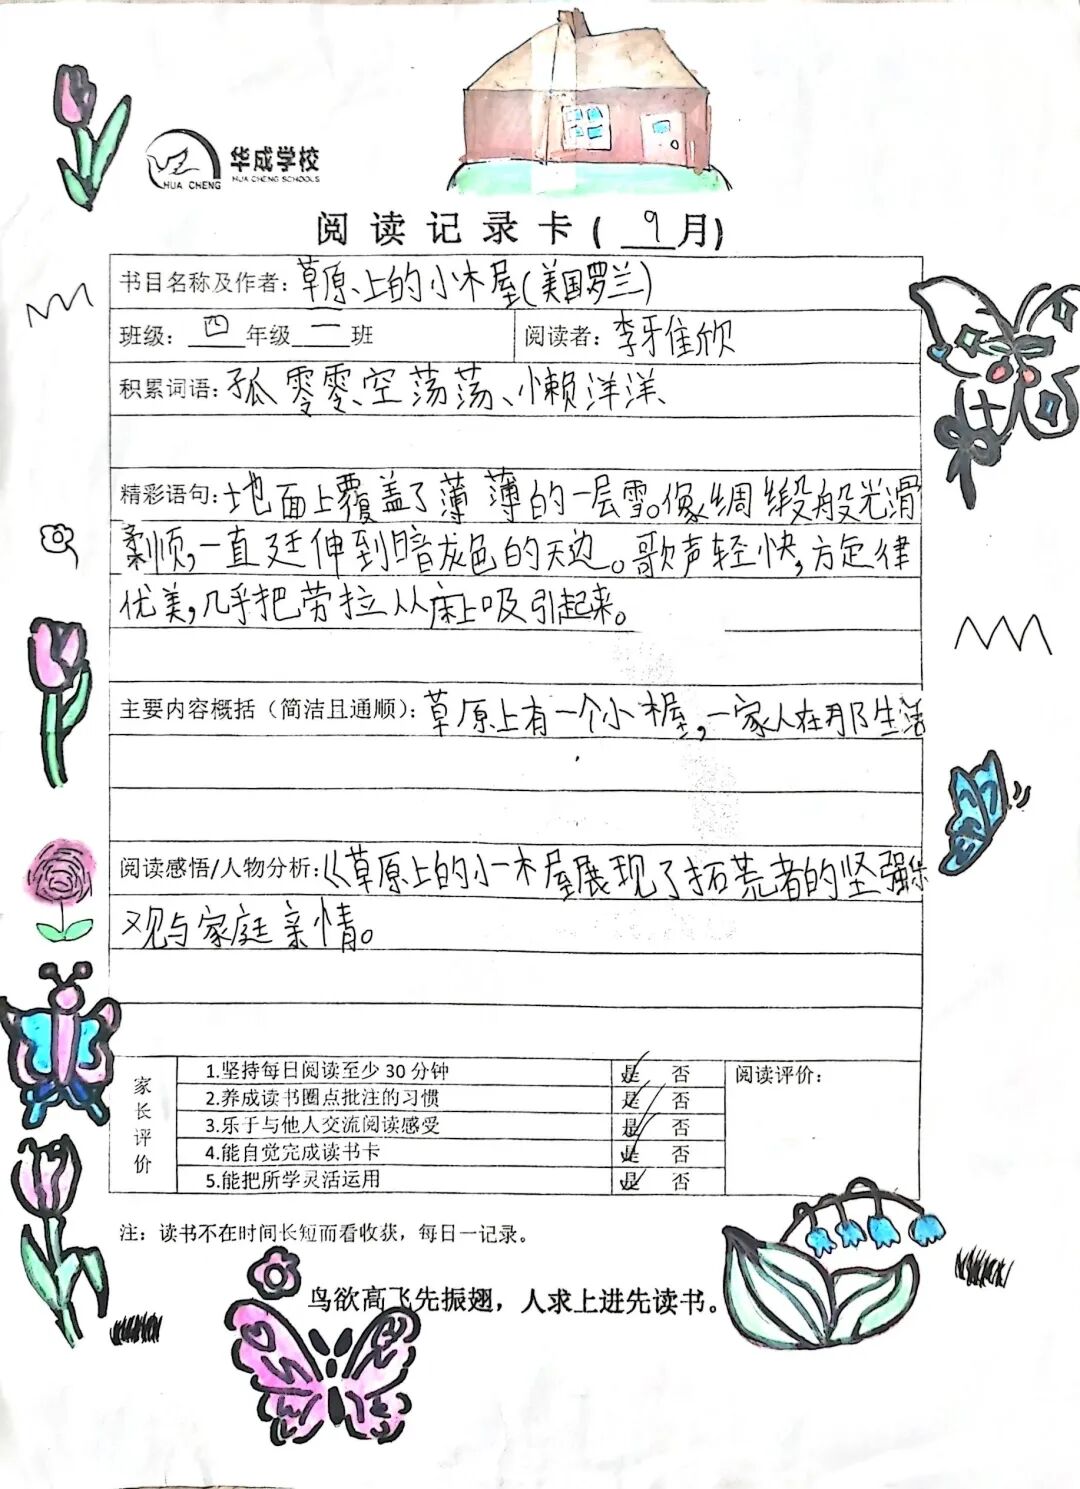 华成学校
HUA CHENG HUA CHENG SCHOOLS
阅读记录卡(9月)
书目名称及作者:草原上的小木屋(美国罗兰)
班级:四年级一班 阅读者:李牙佳欣
积累词语:孤零零、空荡荡、懒洋洋、
精彩语句:地面上覆盖了薄薄的一层雪。像绸缎般光滑
柔顺,一直廷伸到暗灰色的天边。歌声轻快,方定律
优美,几乎把劳拉从床上吸引起来。
主要内容概括(简洁且通顺):草原上有一个小木屋,一家人在那生活
阅读感悟/人物分析:《草原上的小木屋展现了拓荒者的坚强乐
观与家庭亲情。
家长评价
1.坚持每日阅读至少30分钟 是 否 阅读评价:
2.养成读书圈点批注的习惯 是 否
3.乐于与他人交流阅读感受 是 否
4.能自觉完成读书卡 是 否
5.能把所学灵活运用 是 否
注:读书不在时间长短而看收获,每日一记录。
鸟欲高飞先振翅,人求上进先读书。